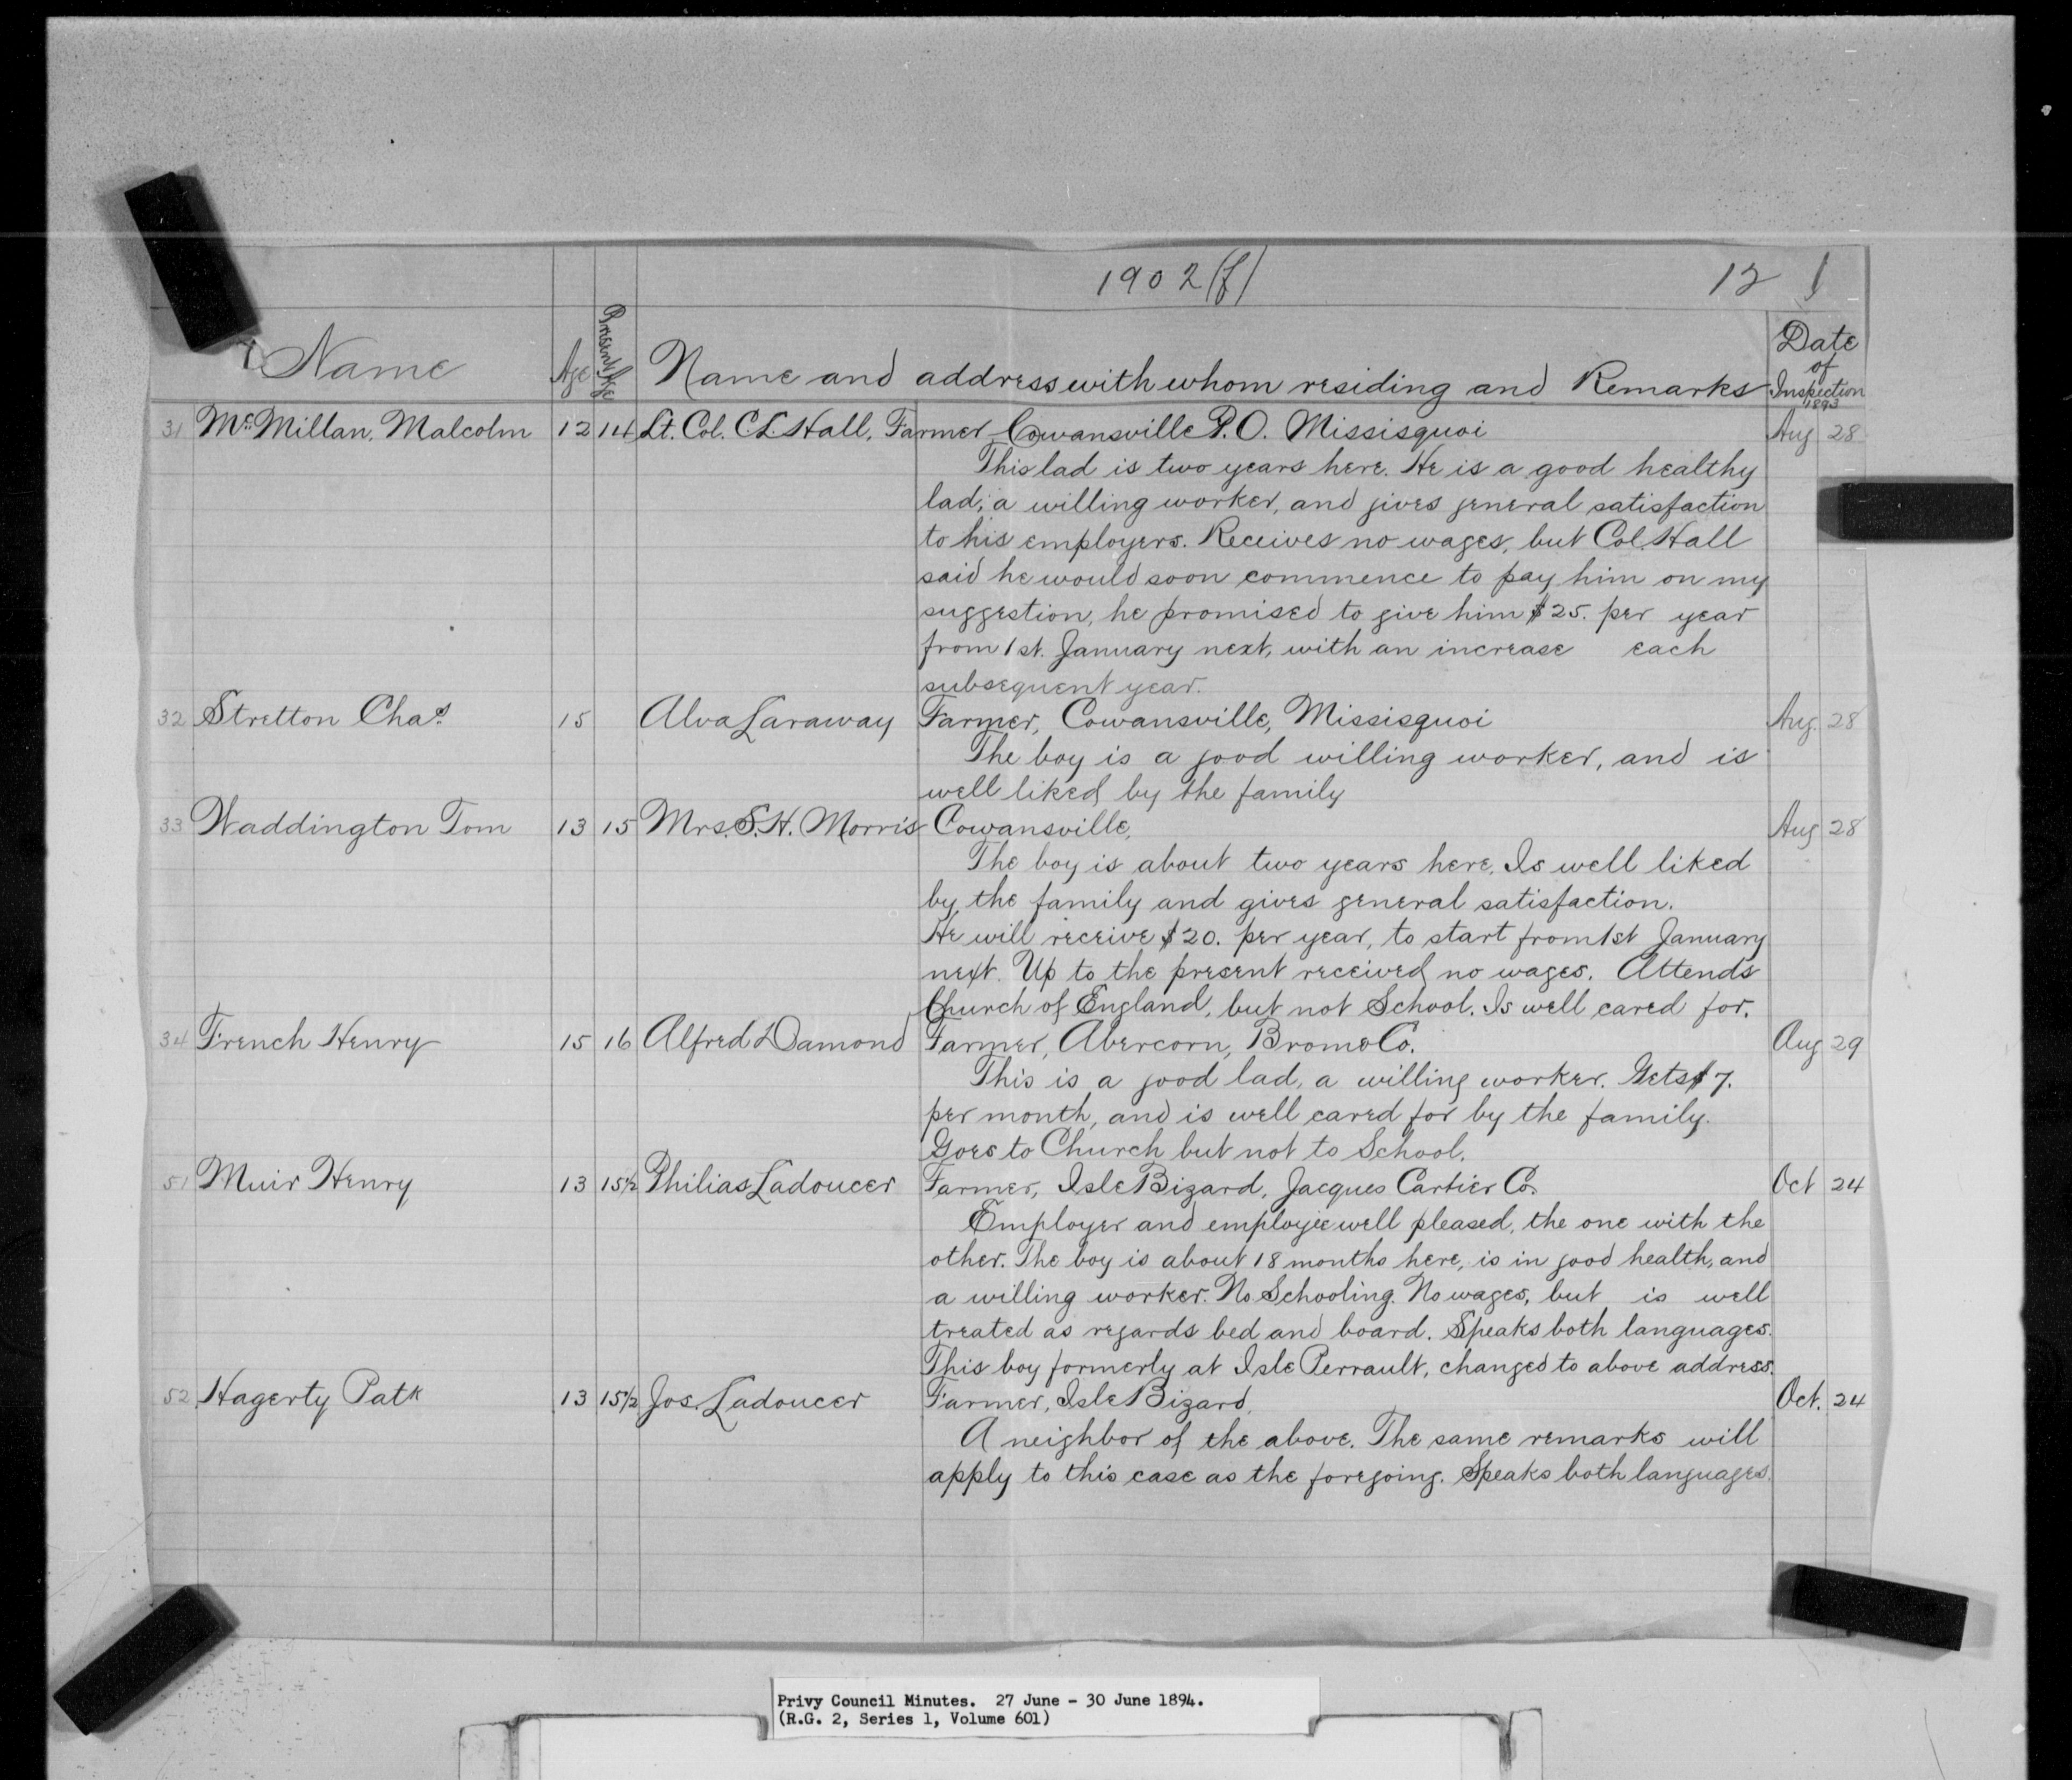 1902(f) 12 1
Name Age Present Age Name and address with whom residing and Remarks Date of Inspection 1893
31 McMillan, Malcolm 12 14 Lt. Col. C.L. Hall, Farmer Cowansville P.O. Missisquoi Aug 28
This lad is two years here. He is a good healthy
lad; a willing worker, and gives general satisfaction
to his employers. Receives no wages, but Col. Hall
said he would soon commence to pay him on my
suggestion, he promised to give him $25. per year
from 1st. January next, with an increase each
subsequent year.
32 Stretton Chas. 15 Alva Laraway Farmer, Cowansville, Missisquoi Aug. 28
The boy is a good willing worker, and is
well liked by the family
33 Waddington Tom 13 15 Mrs. S.H. Morris Cowansville, Aug 28
The boy is about two years here. Is well liked
by the family and gives general satisfaction.
He will receive $20. per year, to start from 1st January
next. Up to the present received no wages. Attends
Church of England, but not School. Is well cared for.
34 French Henry 15 16 Alfred Damond Farmer, Abercorn, Brome Co. Aug 29
This is a good lad, a willing worker. Gets $7.
per month, and is well cared for by the family.
Goes to Church but not to School.
51 Muir Henry 13 15½ Philias Ladoucer Farmer, Isle Bizard, Jacques Cartier Co. Oct 24
Employer and employie well pleased, the one with the
other. The boy is about 18 months here, is in good health, and
a willing worker. No Schooling. No wages, but is well
treated as regards bed and board. Speaks both languages.
This boy formerly at Isle Perrault, changed to above address.
52 Hagerty Patk 13 15½ Jos. Ladoucer Farmer, Isle Bizard. Oct. 24
A neighbor of the above. The same remarks will
apply to this case as the foregoing. Speaks both languages.
Privy Council Minutes. 27 June - 30 June 1894.
(R.G. 2, Series 1, Volume 601)